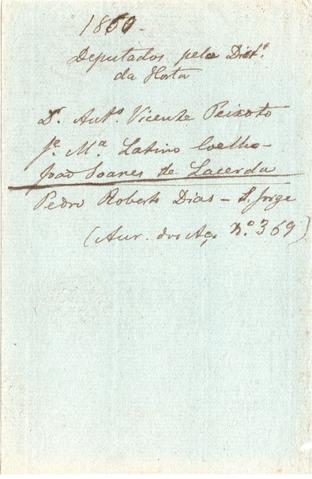 1860.
Deputados pelo Dist.º
da Horta
Dr. Ant.º Vicente Peixoto
J.e M.ª Latino Coelho -
João Soares de Lacerda
Pedro Roberto Dias - S. Jorge
(Aur. dos Aç. Nº 369)